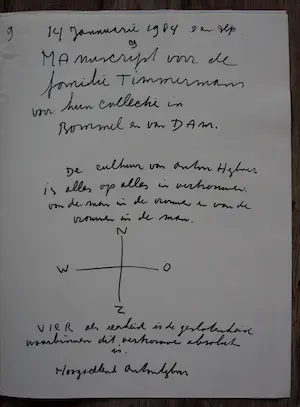 9 14 Jannuarie 1984
MAnuscript voor de
familie Timmermans
voor hun collectie in
Bommel en van DAm.
De cultuur van Anton Heyboer
is alles op alles in vertrouwen
van de man in de vrouw en van de
vrouwen in de man.
N
W O
Z
VIER als eenheid is de geslotenheid
waarbinnen dit vertrouwen absoluut
is.
Hoogachtend Anton Heyboer